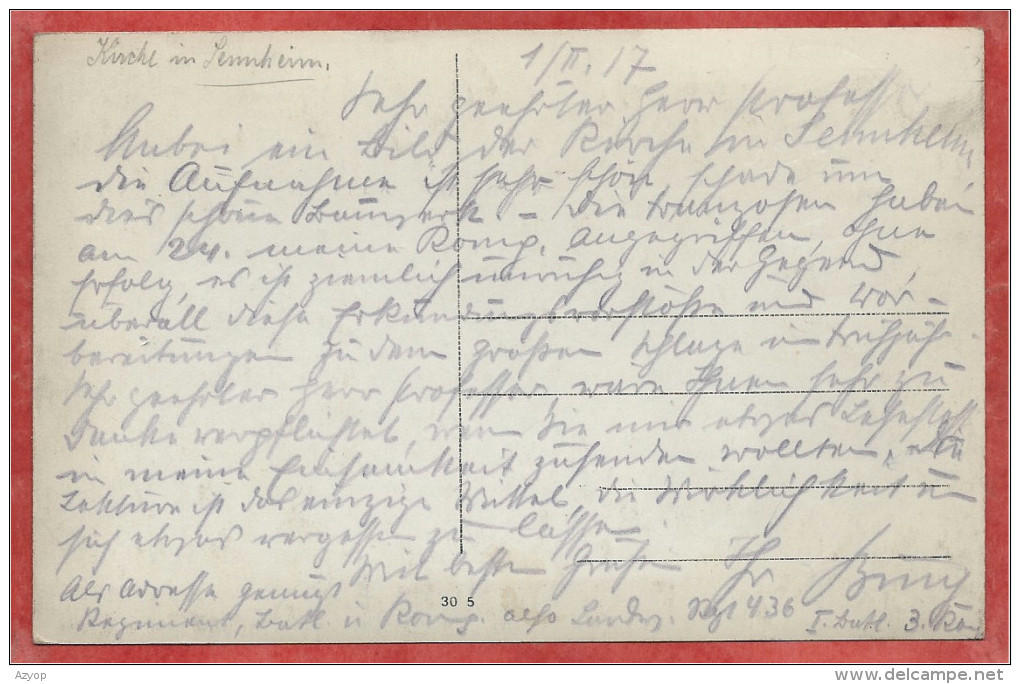 Kirche in Sennheim.
1/II. 17
Sehr geehrter Herr Profess
Anbei ein Bild der Kirche in Sennheim,
die Aufnahme ist sehr schön, schade um
dies schöne Bauwerk – Die Franzosen haben
am 24. meine Komp. angegriffen, ohne
Erfolg, es ist ziemlich unruhig in der Gegend,
überall diese Erkundungsvorstöße und Vor-
bereitungen zu dem großen Schlage im Frühjahr
Sehr geehrter Herr Professor, wäre Ihnen sehr zu
Danke verpflichtet, wenn Sie mir etwas Lesestoff
in meine Einsamkeit zusenden wollten, die
Lektüre ist das einzige Mittel, die Wirklichkeit um
sich etwas vergessen zu lassen
Mit besten Grüßen Ihr
Als Adresse genügt
Regiment, Batl. u Komp. also Landw. Rgt 436
I. Batl. 3. Kom
30 5
Azyop
www.delcampe.net